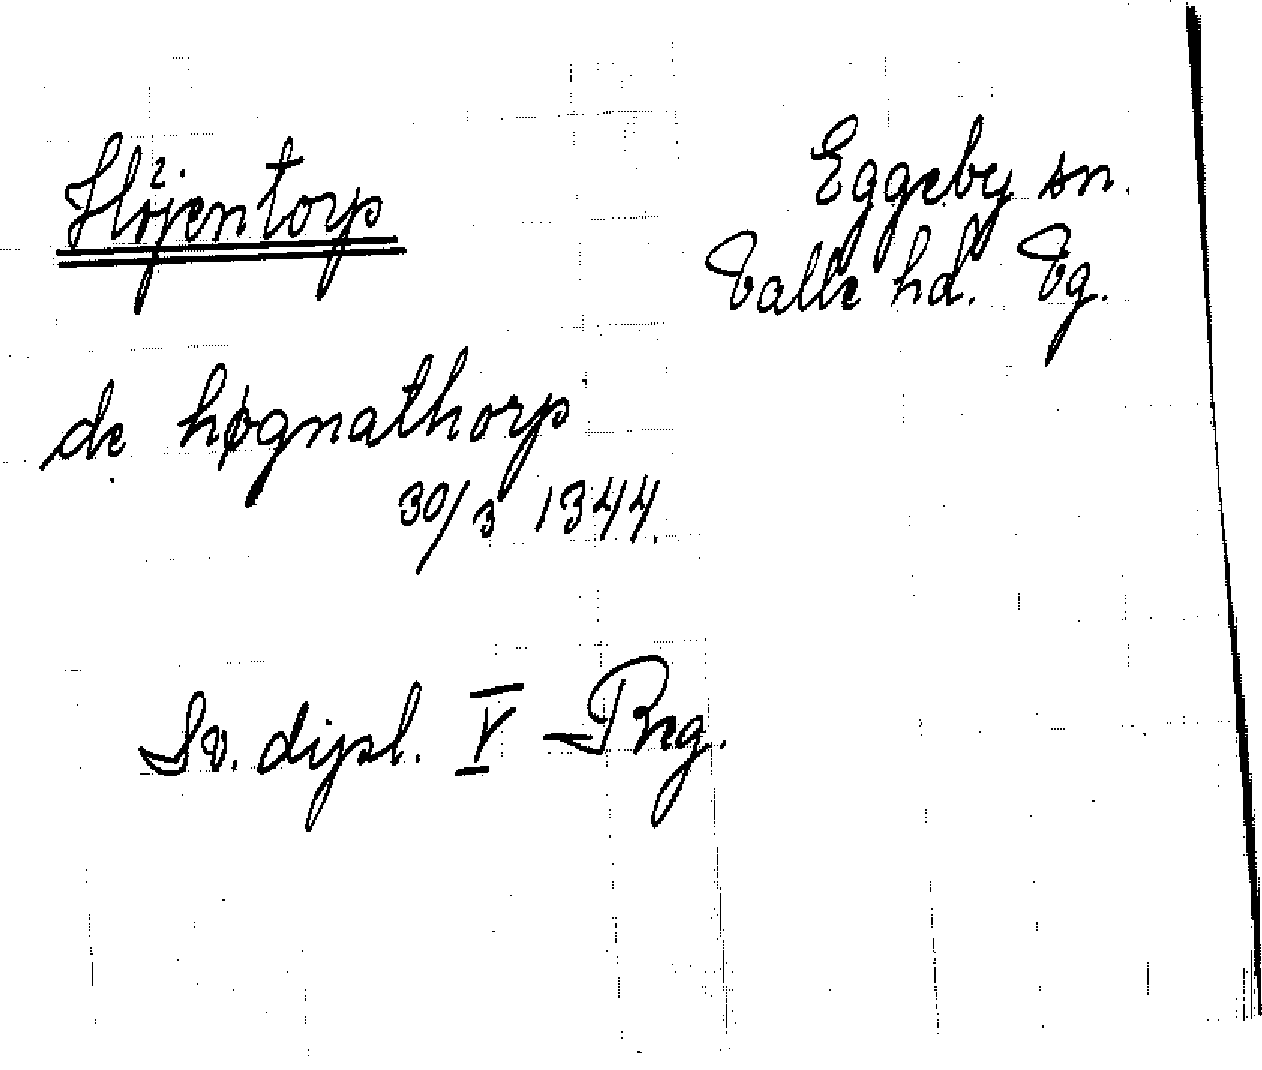 Höjentorp
Eggeby sn.
Valle hd. Vg.
de høgnathorp
30/3 1344.
Sv. dipl. V Reg.